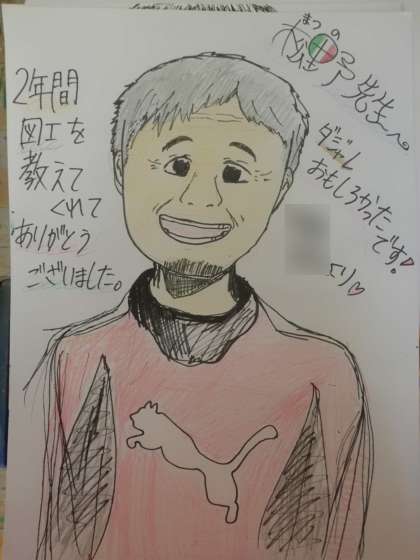 まつの
松野先生へ。
2年間
図工を
教えて
くれて
ありがとう
ございました。
ダジャレ
おもしろかった
です!
より♡